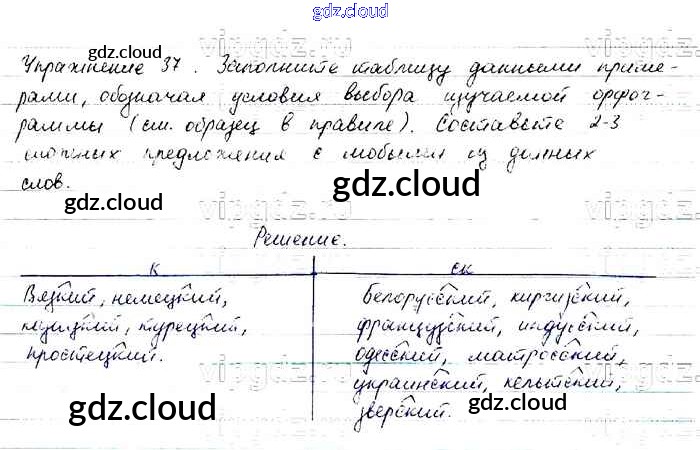 gdz.cloud
Упражнение 37. Заполните таблицу данными приме-
gdz.cloud
рами, обозначая условия выбора изучаемой орфог-
раммы (см. образец в правиле). Составьте 2-3
сложных предложения с любыми из данных
слов.
gdz.cloud
gdz.cloud
vipgdz.ru
Решение.
к ск
Вязкий, немецкий, белорусский, киргизский,
турецкий, французский, индусский,
простецкий. одесский, матросский,
украинский, кельтский,
gdz.cloud зверский. gdz.cloud